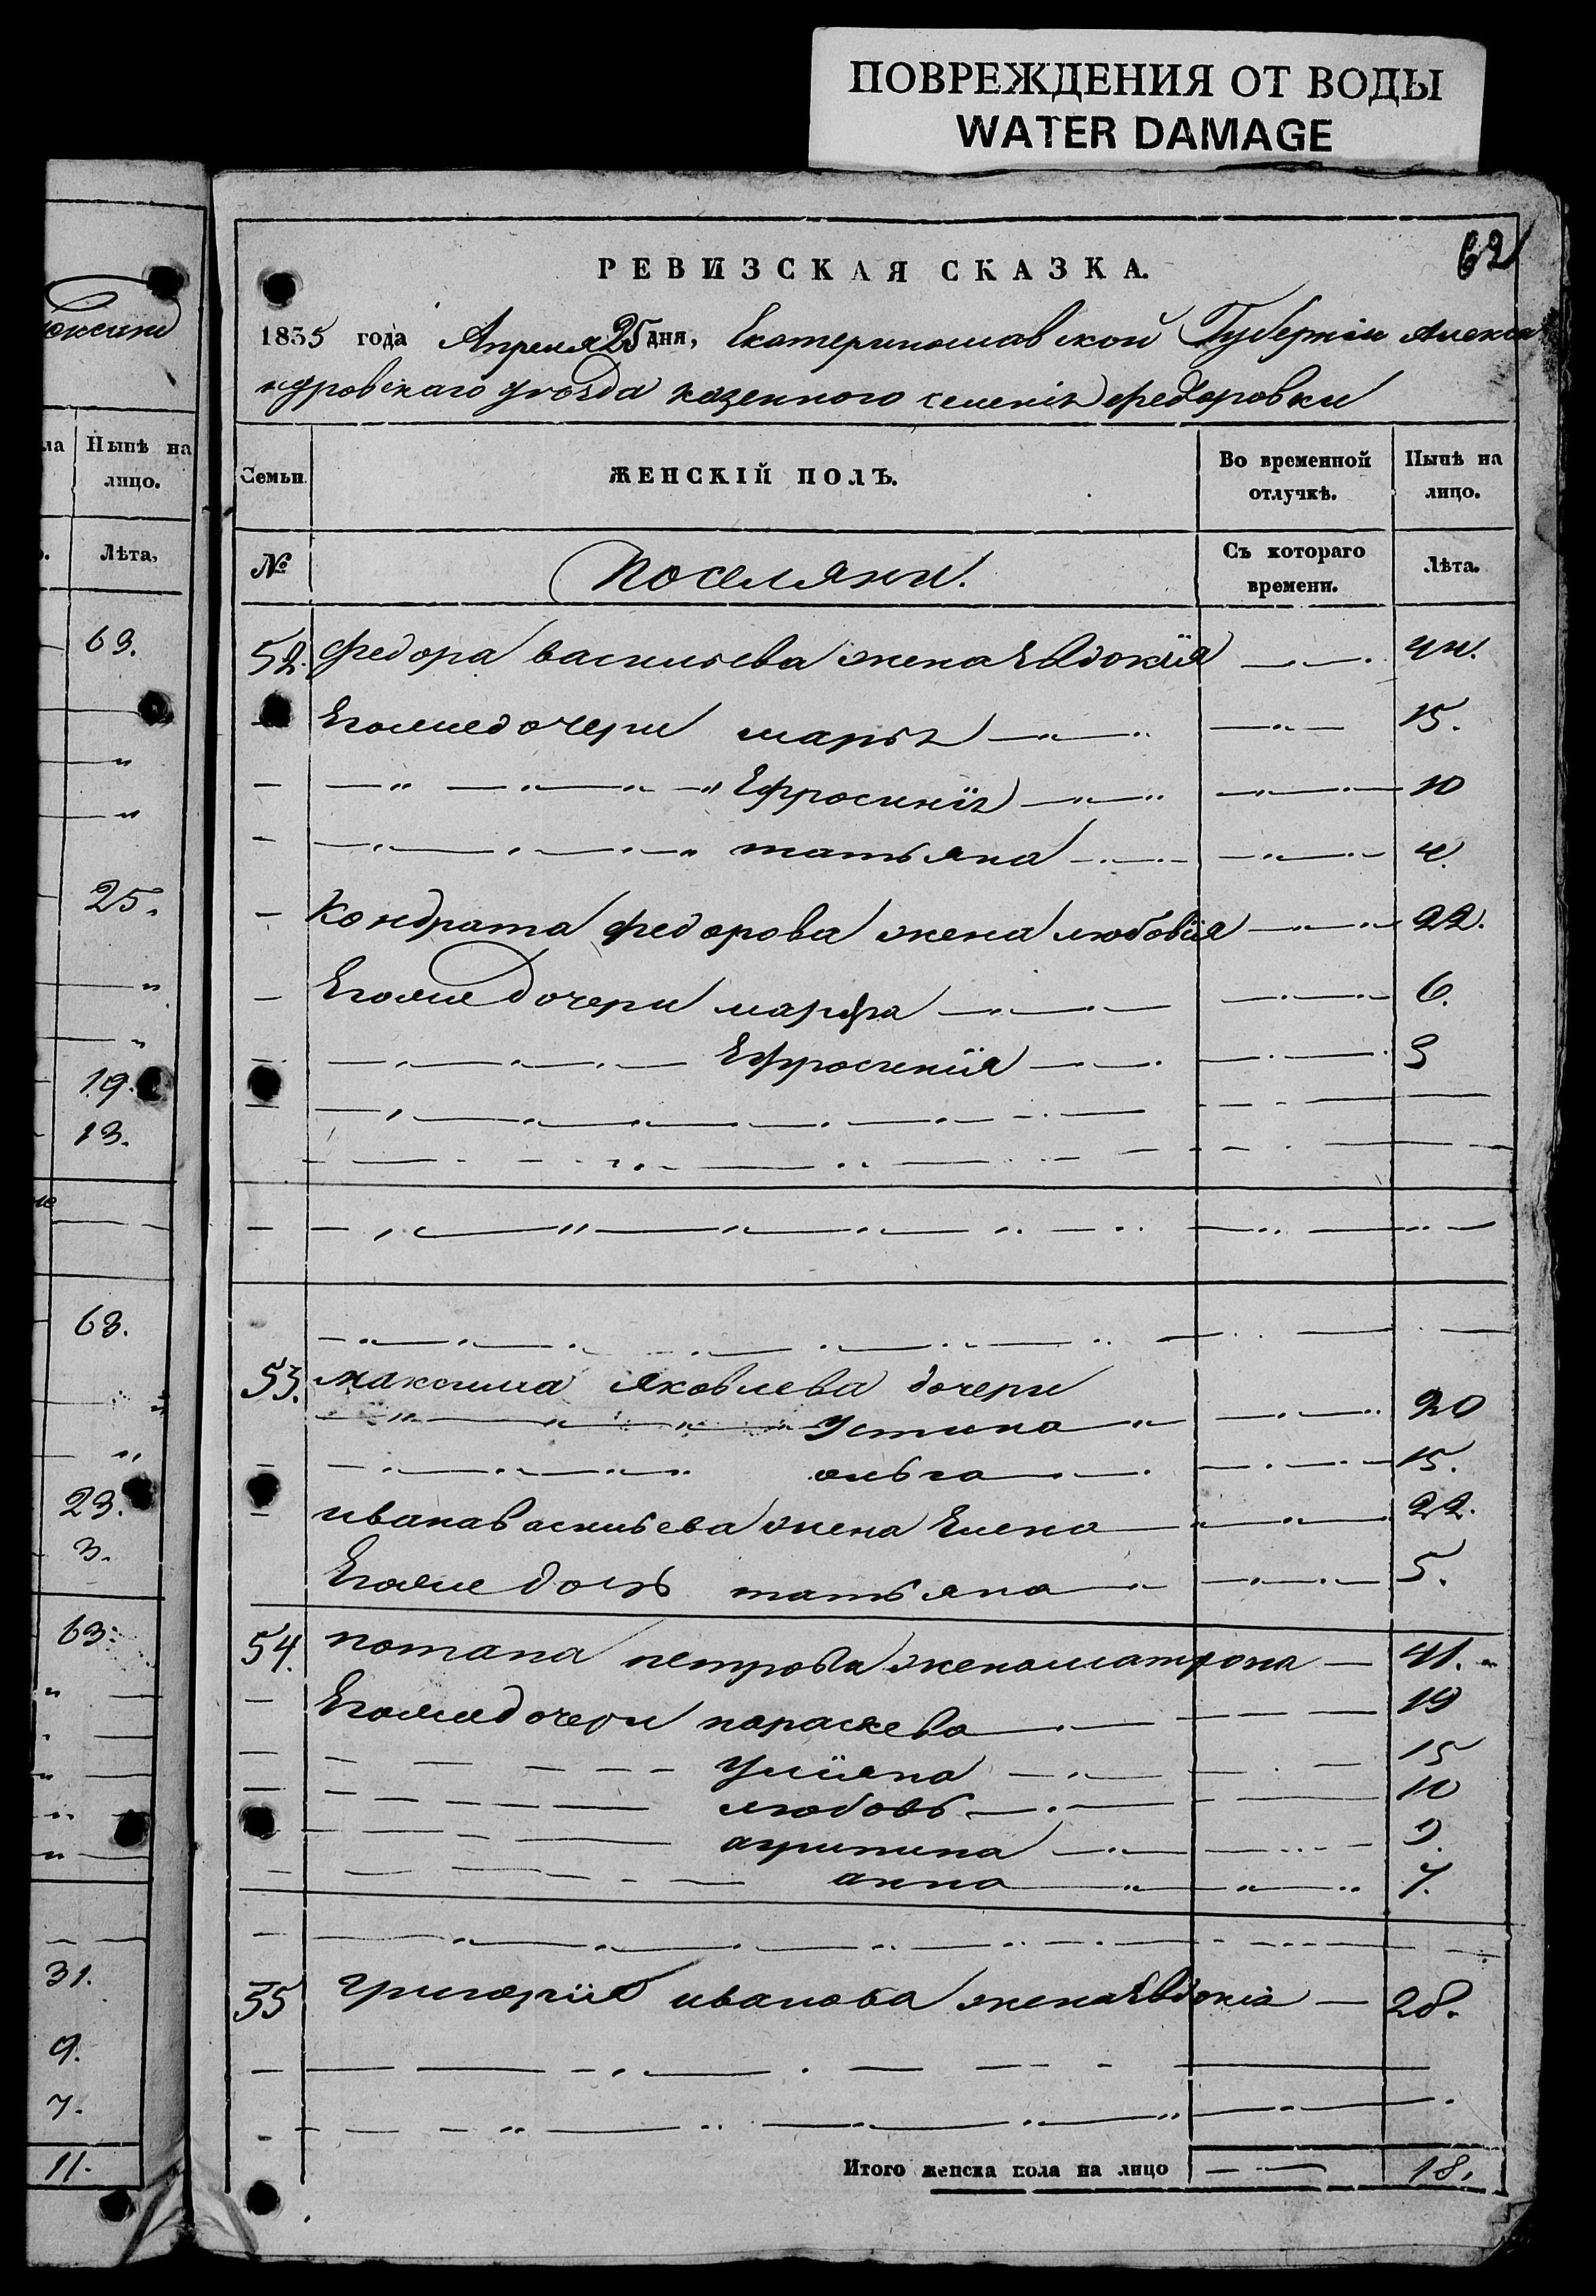 ПОВРЕЖДЕНИЯ ОТ ВОДЫ
WATER DAMAGE
62
РЕВИЗСКАЯ СКАЗКА.
1835 года Апреля 25 дня, Екатеринославской Губерніи Алекса
ндровскаго уѣзда казенного селенія федоровки
ла Нынѣ на лицо.
Лѣта,
63.
25.
19.
13.
63.
23.
3.
63.
31.
9.
7.
11.
Семьи ЖЕНСКІЙ ПОЛЪ. Во временной отлучкѣ. Нынѣ на лицо.
№ Поселяни. Съ котораго времени. Лѣта.
52. федора васильева жена Евдокія 44.
Егоже дочери марья 15.
Ефросинія 10
татьяна 4.
Кондрата федорова жена любовія 22.
Егоже дочери марфа 6.
Ефросинія 3
53. максима яковлева дочери
Устина 20
ольга 15.
ивана васильева жена Елена 22.
Егоже дочь татьяна 5.
54. потапа петрова жена матрона 41.
Егоже дочери параскева 19
Улияна 15
любовь 10
агрипина 9.
анна 7.
55 григорія иванова жена Евдокія 28.
Итого женска пола на лицо 18.